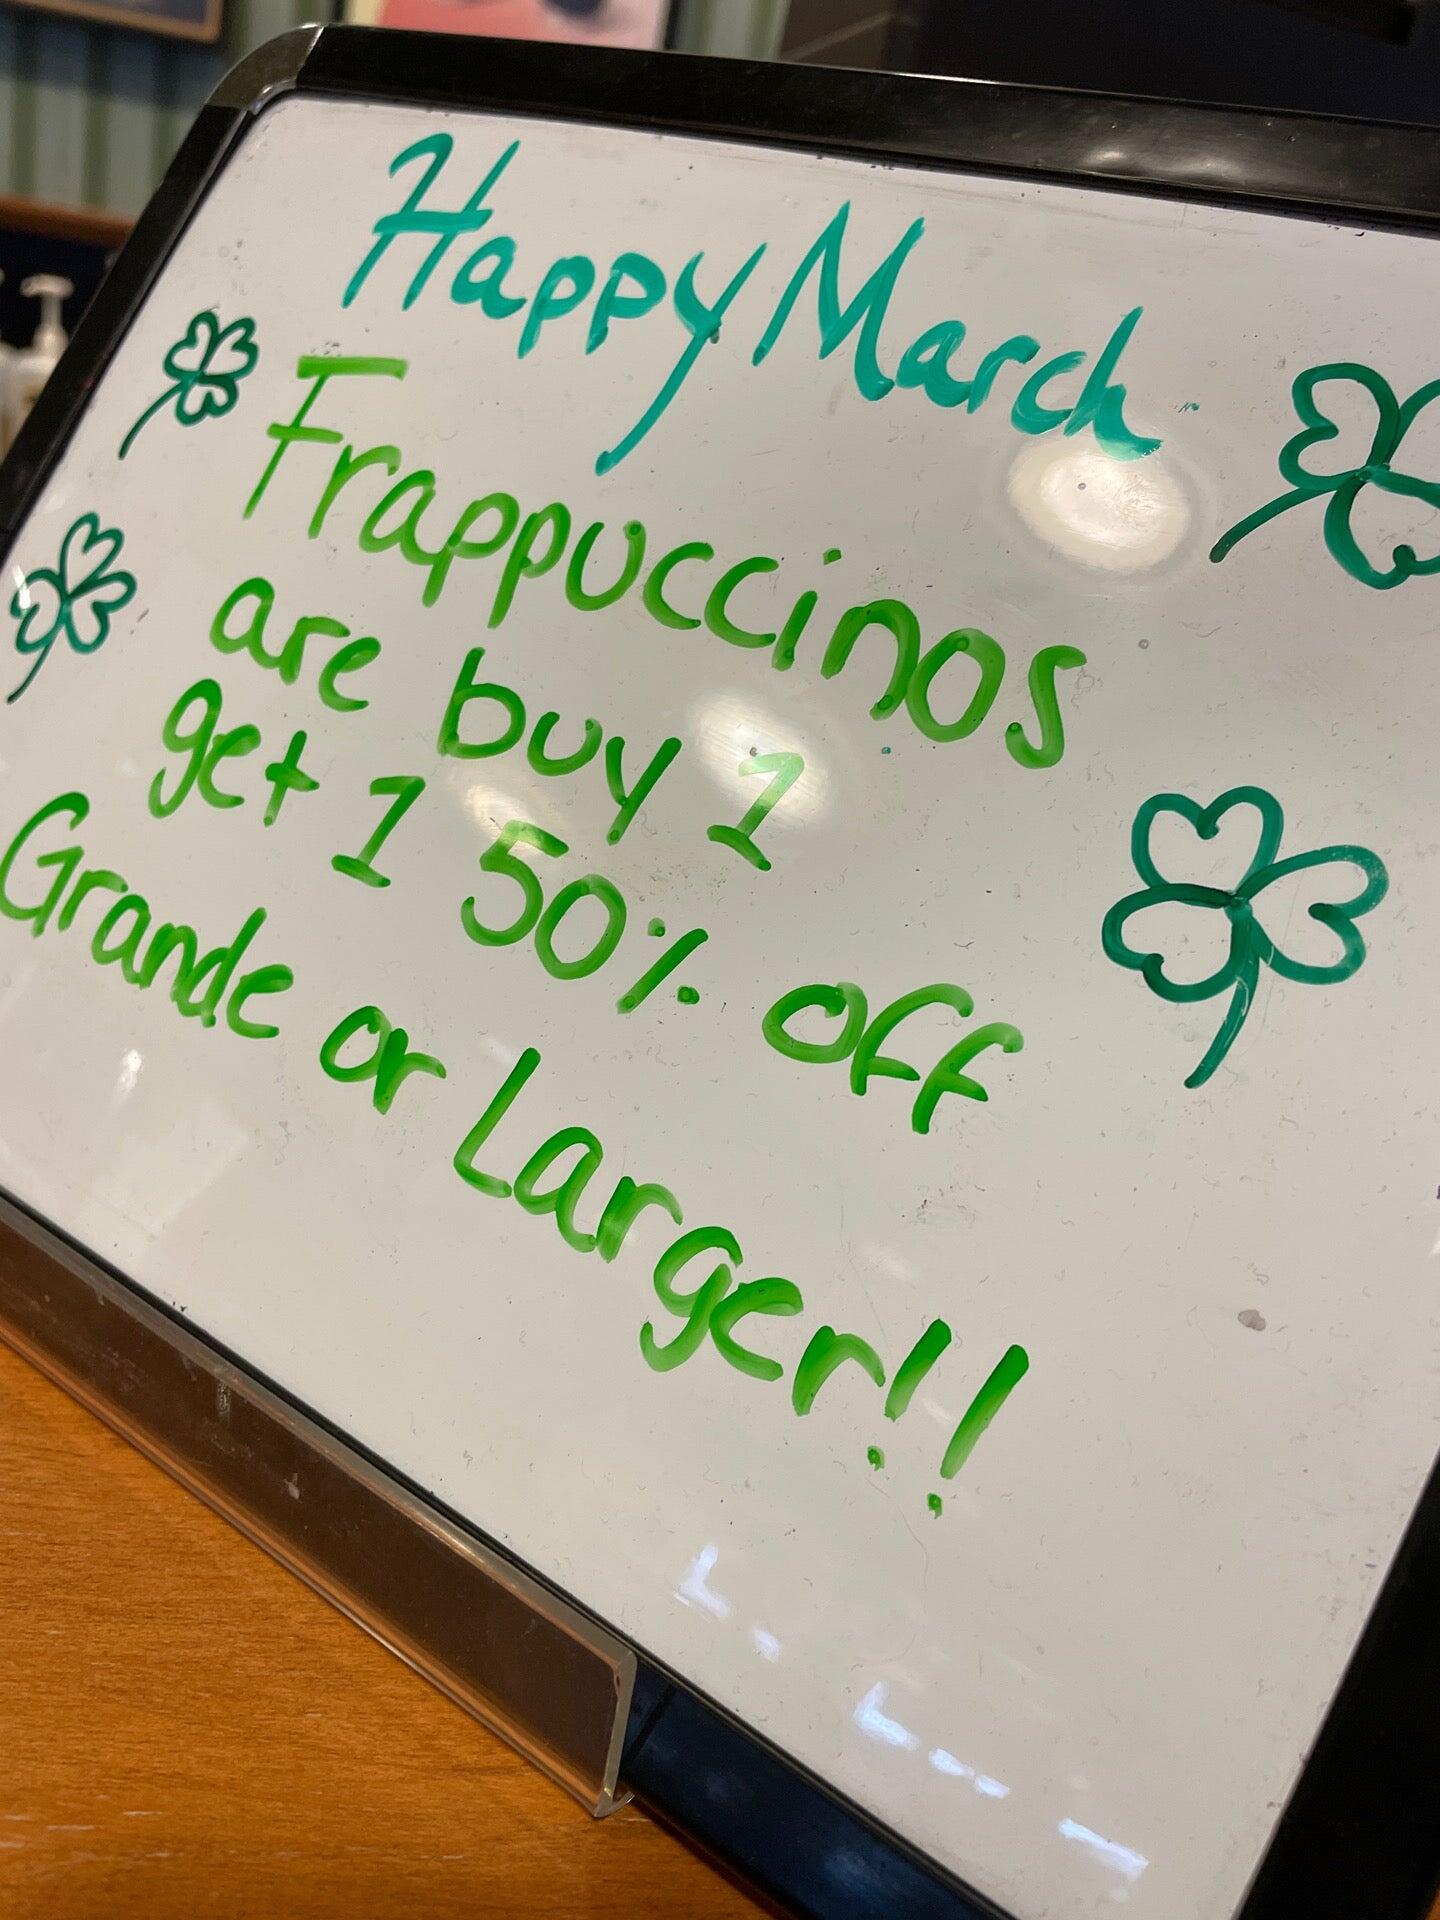 Happy March
Frappuccinos
are buy 1
get 1 50% off
Grande or Larger!!